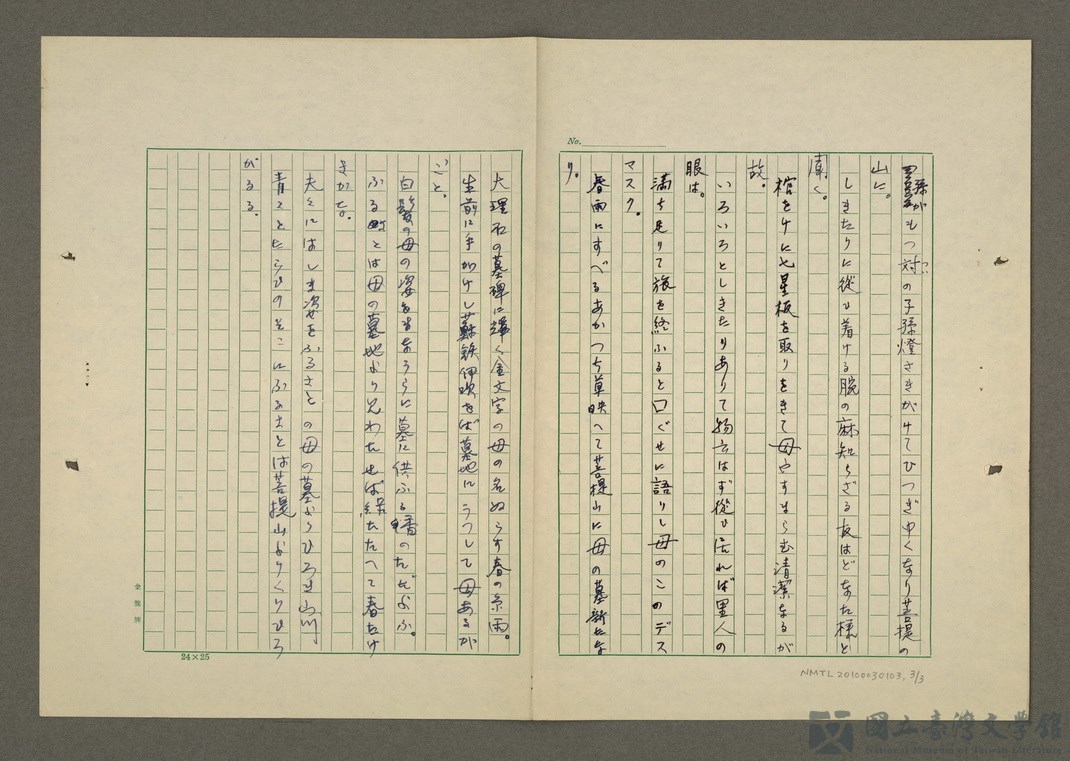 No.
孫がもつ対の子孫燈さきがけてひつぎゆくなり菩提の
山に。
しきたりに従ひ着ける腕の麻知らざる友はどなた様と
聞く。
棺を中に七星板を取りをきて母やすまらむ清潔なるが
故。
いろいろとしきたりありて物云はず従ひ居れば里人の
眼は。
満ち足りて旅を終ふると口ぐせに語りし母のこのデス
マスク。
春雨にすべるあかつち草映へて菩提山に母の墓新たな
り。
大理石の墓碑に輝く金文字の母の名ぬらす春の糸雨。
生前に手がけし蘇鉄伊吹をば墓地にうつして母あるが
ごと。
白髪の母の姿をまなうらに墓に供ふる香のたゞよふ。
ふる里とは母の墓地より見わたせば緑たたへて春たけ
きかな。
夫々にはしき姿をふるさとの母の墓よりひろき山川、
青々とたらひのそこにふるさとは菩提山よりくりひろ
がるる。
24×25
金龍牌
NMTL20100030103, 3/3
國立臺灣文學館
National Museum of Taiwan Literature